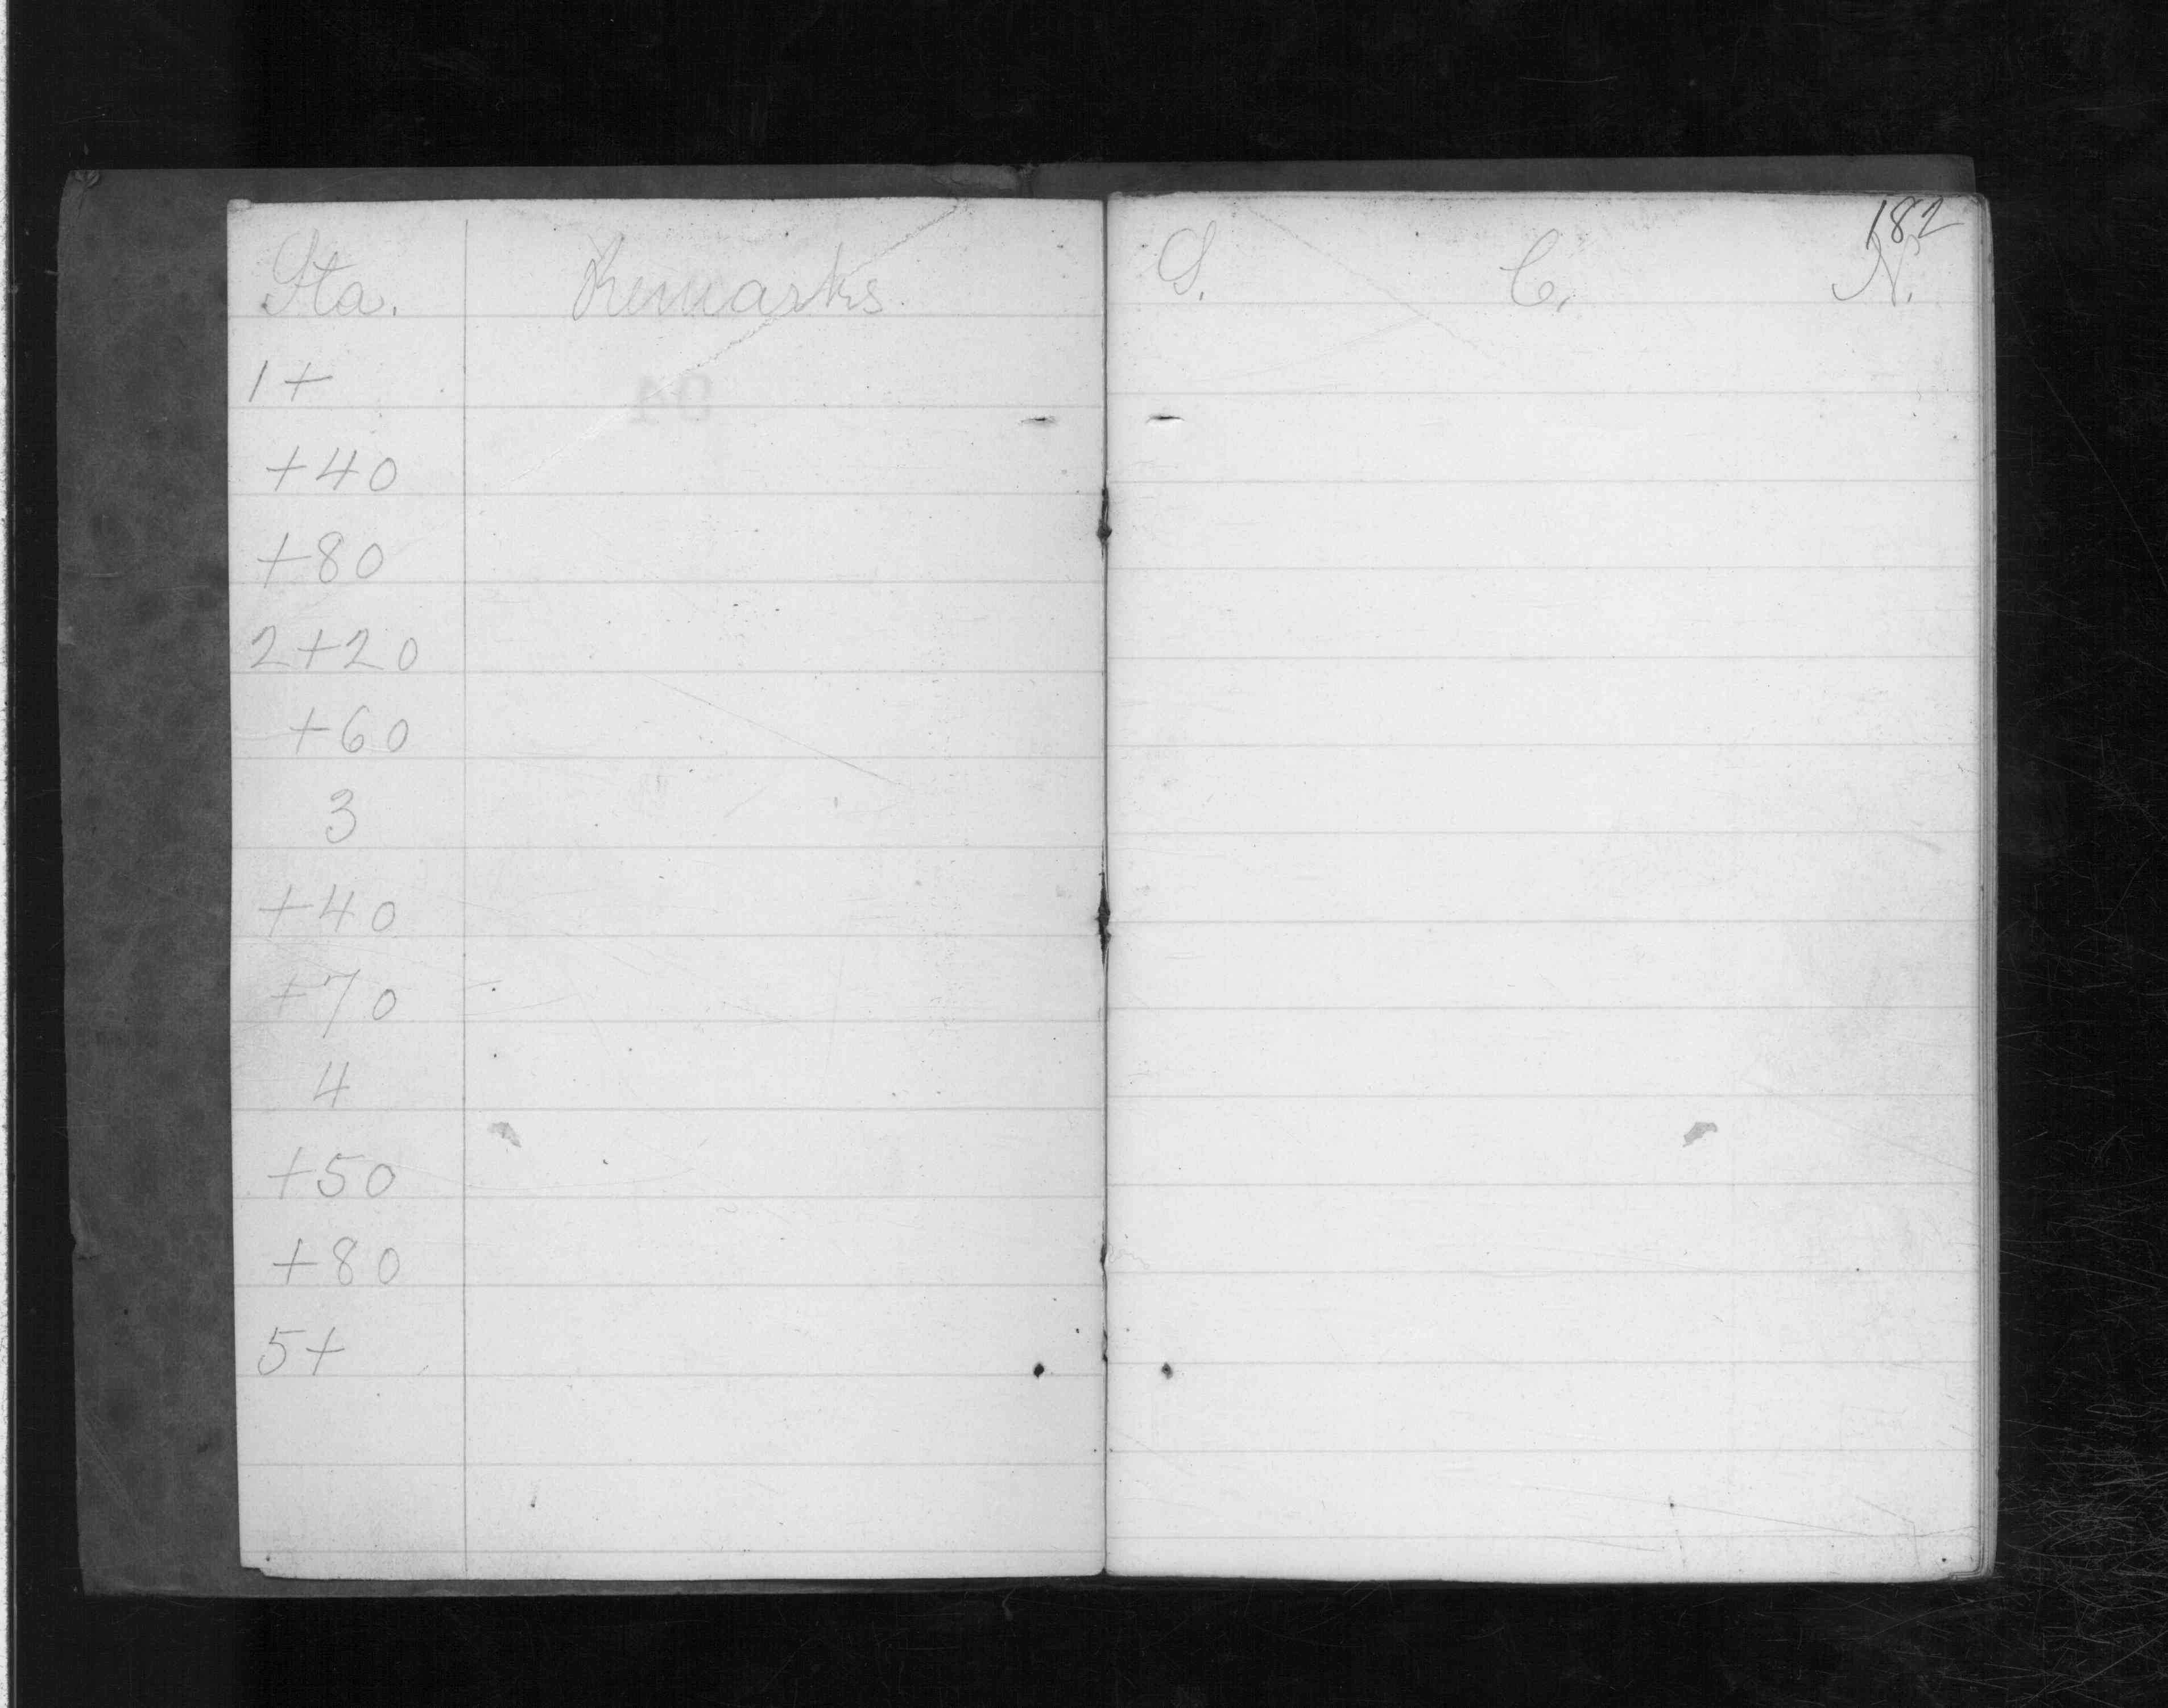 Sta. Remarks.
1+
+40
+80
2+20
+60
3
+40
+70
4
+50
+80
5+
182
S. C. N.